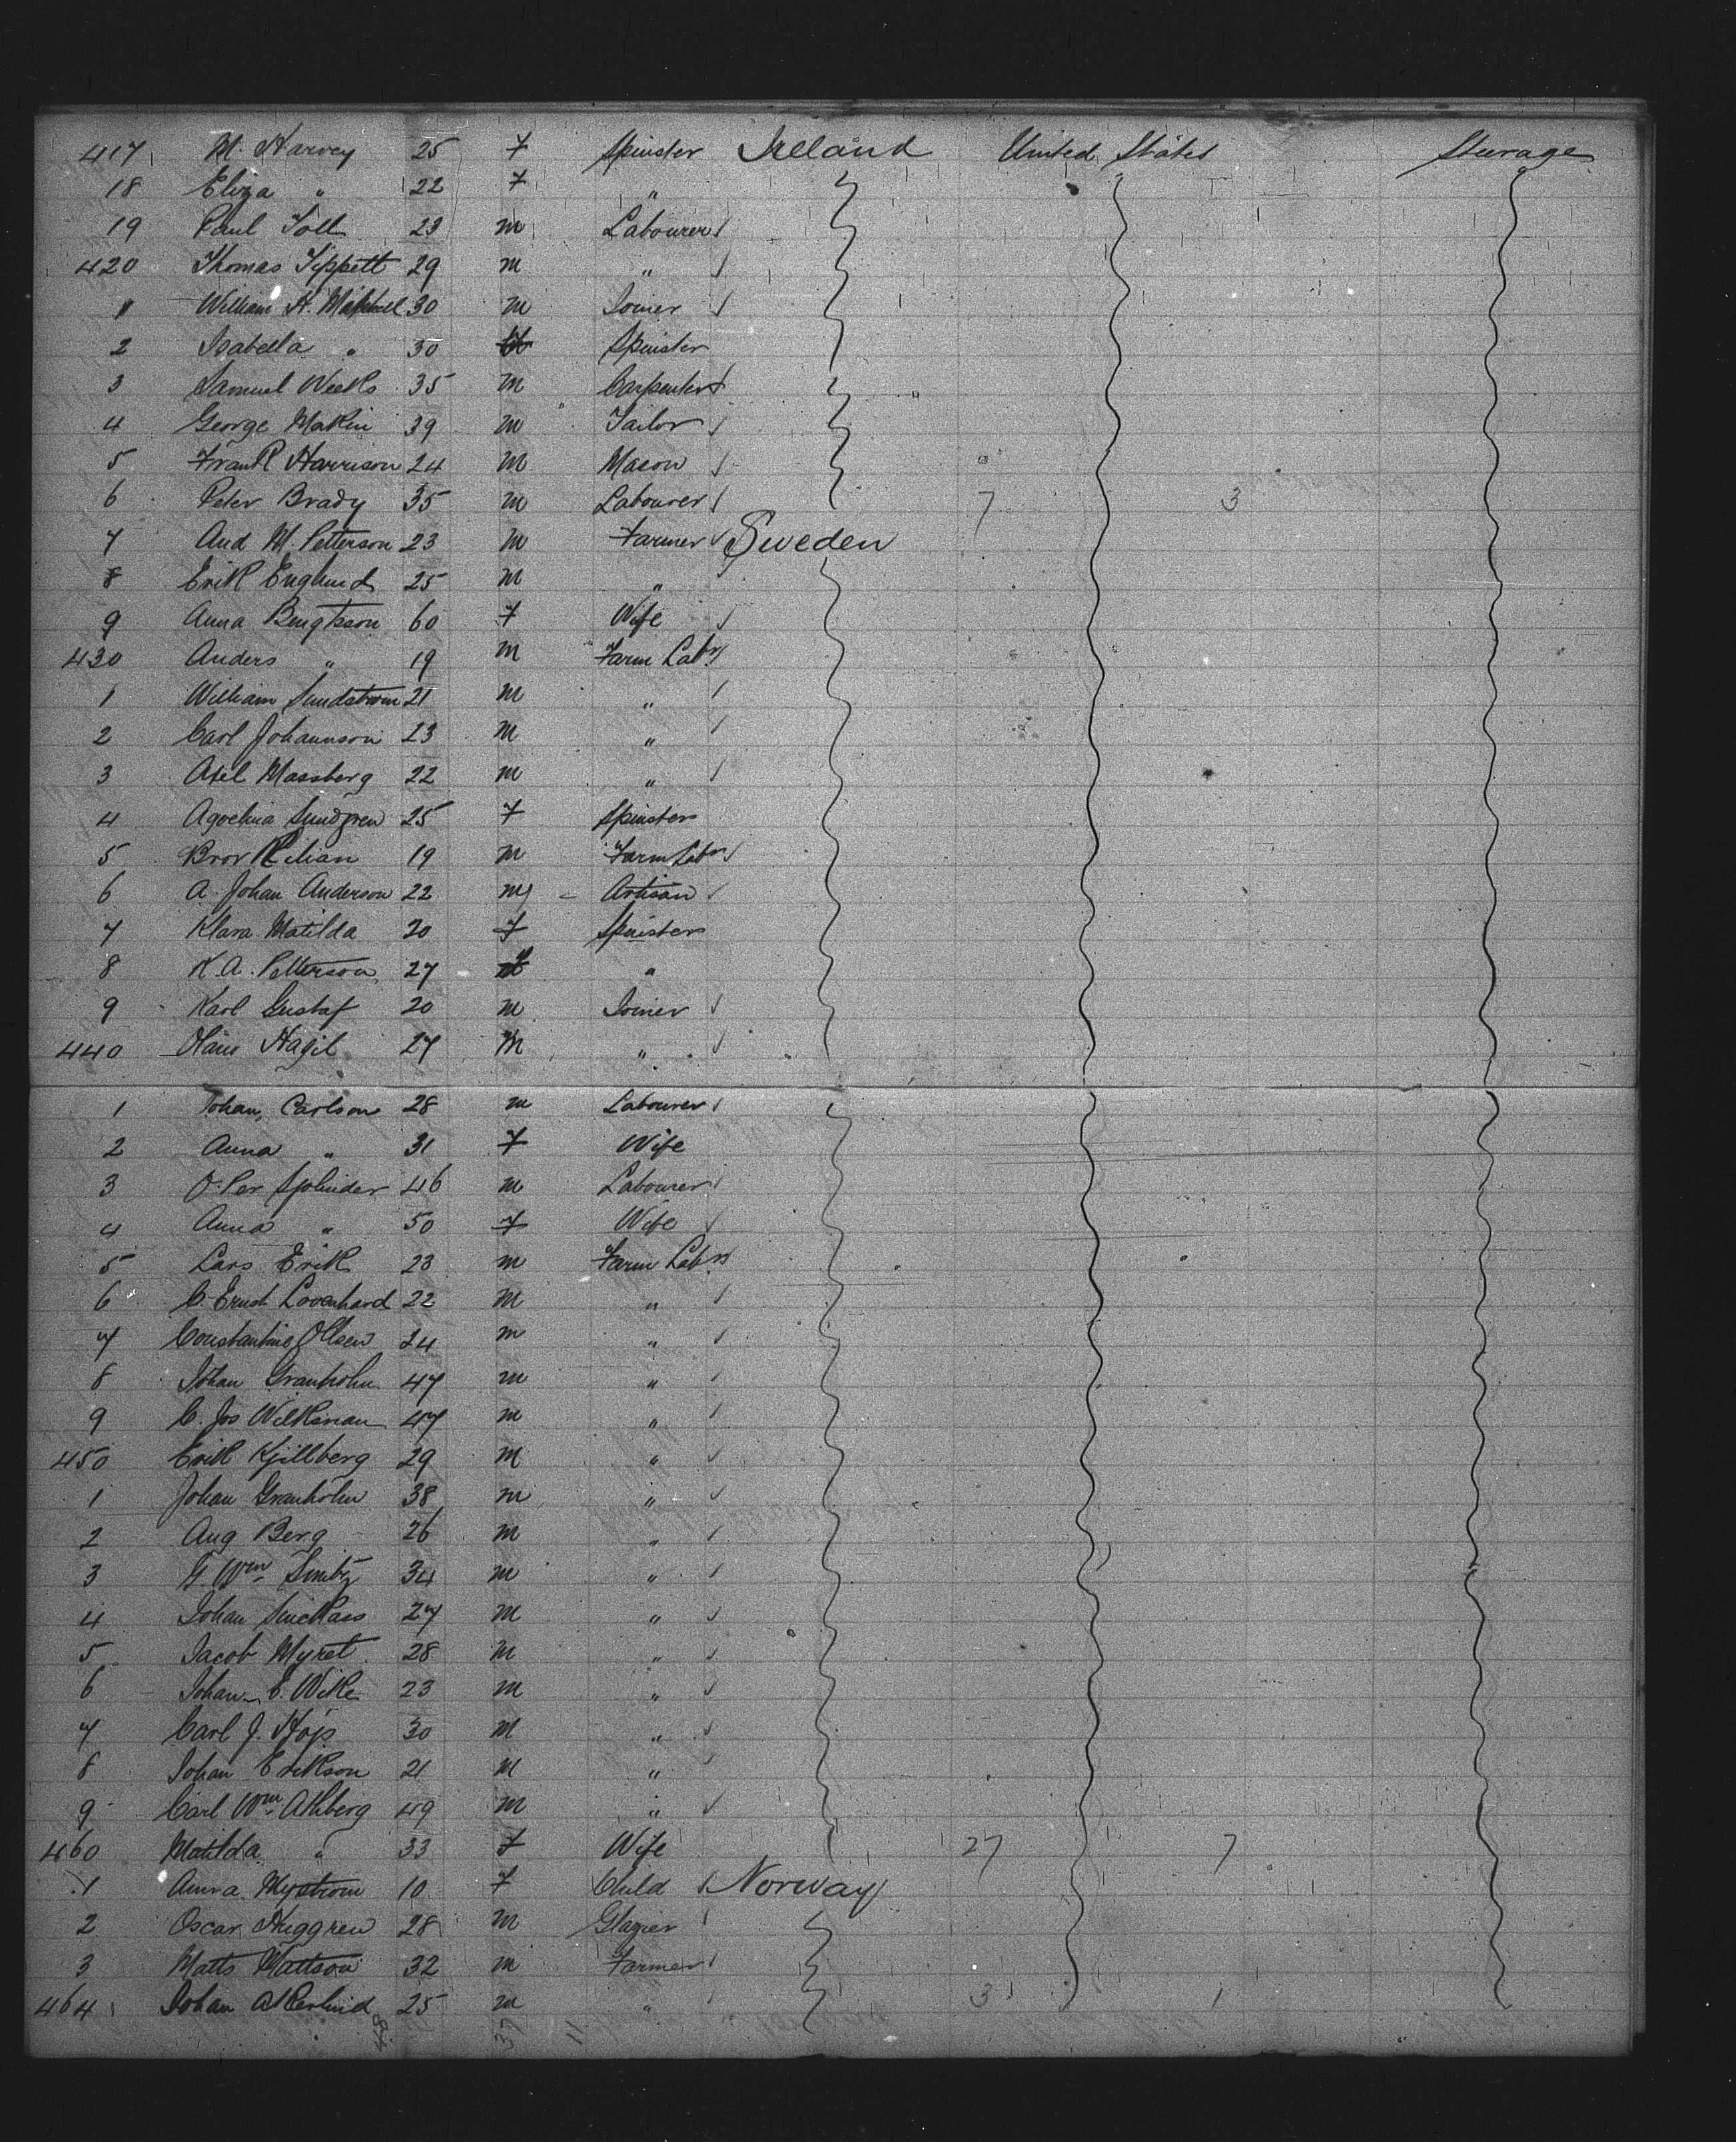 417 M. Harvey 25 F Spinster Ireland United States Steerage
18 Eliza " 22 F "
19 Paul Toll 23 M Labourer
420 Thomas Tippett 29 M "
1 William H. 30 M Joiner
2 Isabella " 30 Spinster
3 Samuel Weeks 35 M Carpenter
4 George Makin 39 M Tailor
5 Frank Harrison 24 M Mason
6 Peter Brady 35 M Labourer 7 3
7 And M. Petterson 23 M Farmer Sweden
8 Erik Englund 25 M "
9 Anna Bengtsson 60 F Wife
430 Anders " 19 M Farm Labr
1 William Sundstrom 21 M "
2 Carl Johannson 23 M "
3 Axel Massberg 22 M "
4 Sundgren 25 F Spinster
5 Bror Kilian 19 M Farm Labr
6 A. Johan Anderson 22 M Artisan
7 Klara Matilda 20 F Spinster
8 K. A. Petterson 27 "
9 Karl Gustaf 20 M Joiner
440 Hans Hagil 27 M "
1 Johan Carlson 28 M Labourer
2 Anna " 31 F Wife
3 O. Per 46 M Labourer
4 Anna " 50 F Wife
5 Lars Erik 23 M Farm Labr
6 C. Ernst Lovenhard 22 M "
7 Constantine Olsen 24 M "
8 Johan Granholm 47 M "
9 C. Jos Wilkman 47 M "
450 Erik Kjillberg 29 M "
1 Johan Granholm 38 M "
2 Aug Berg 26 M "
3 G. Wm 34 M "
4 Johan 27 M "
5 Jacob Myret 28 M "
6 Johan E. Wike 23 M "
7 Carl J. 30 M "
8 Johan Erikson 21 M "
9 Carl Wm Akberg 49 M "
460 Matilda " 33 F Wife 27 7
1 Anna Mystrom 10 F Child Norway
2 Oscar Huggren 28 M Glazier
3 Matts Mattson 32 M Farmer
464 Johan Akerlind 25 M " 3 1
37 11